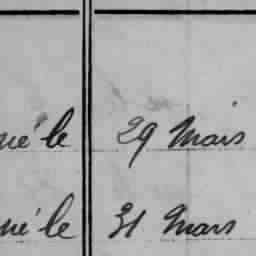 né le 29 Mars
né le 31 Mars